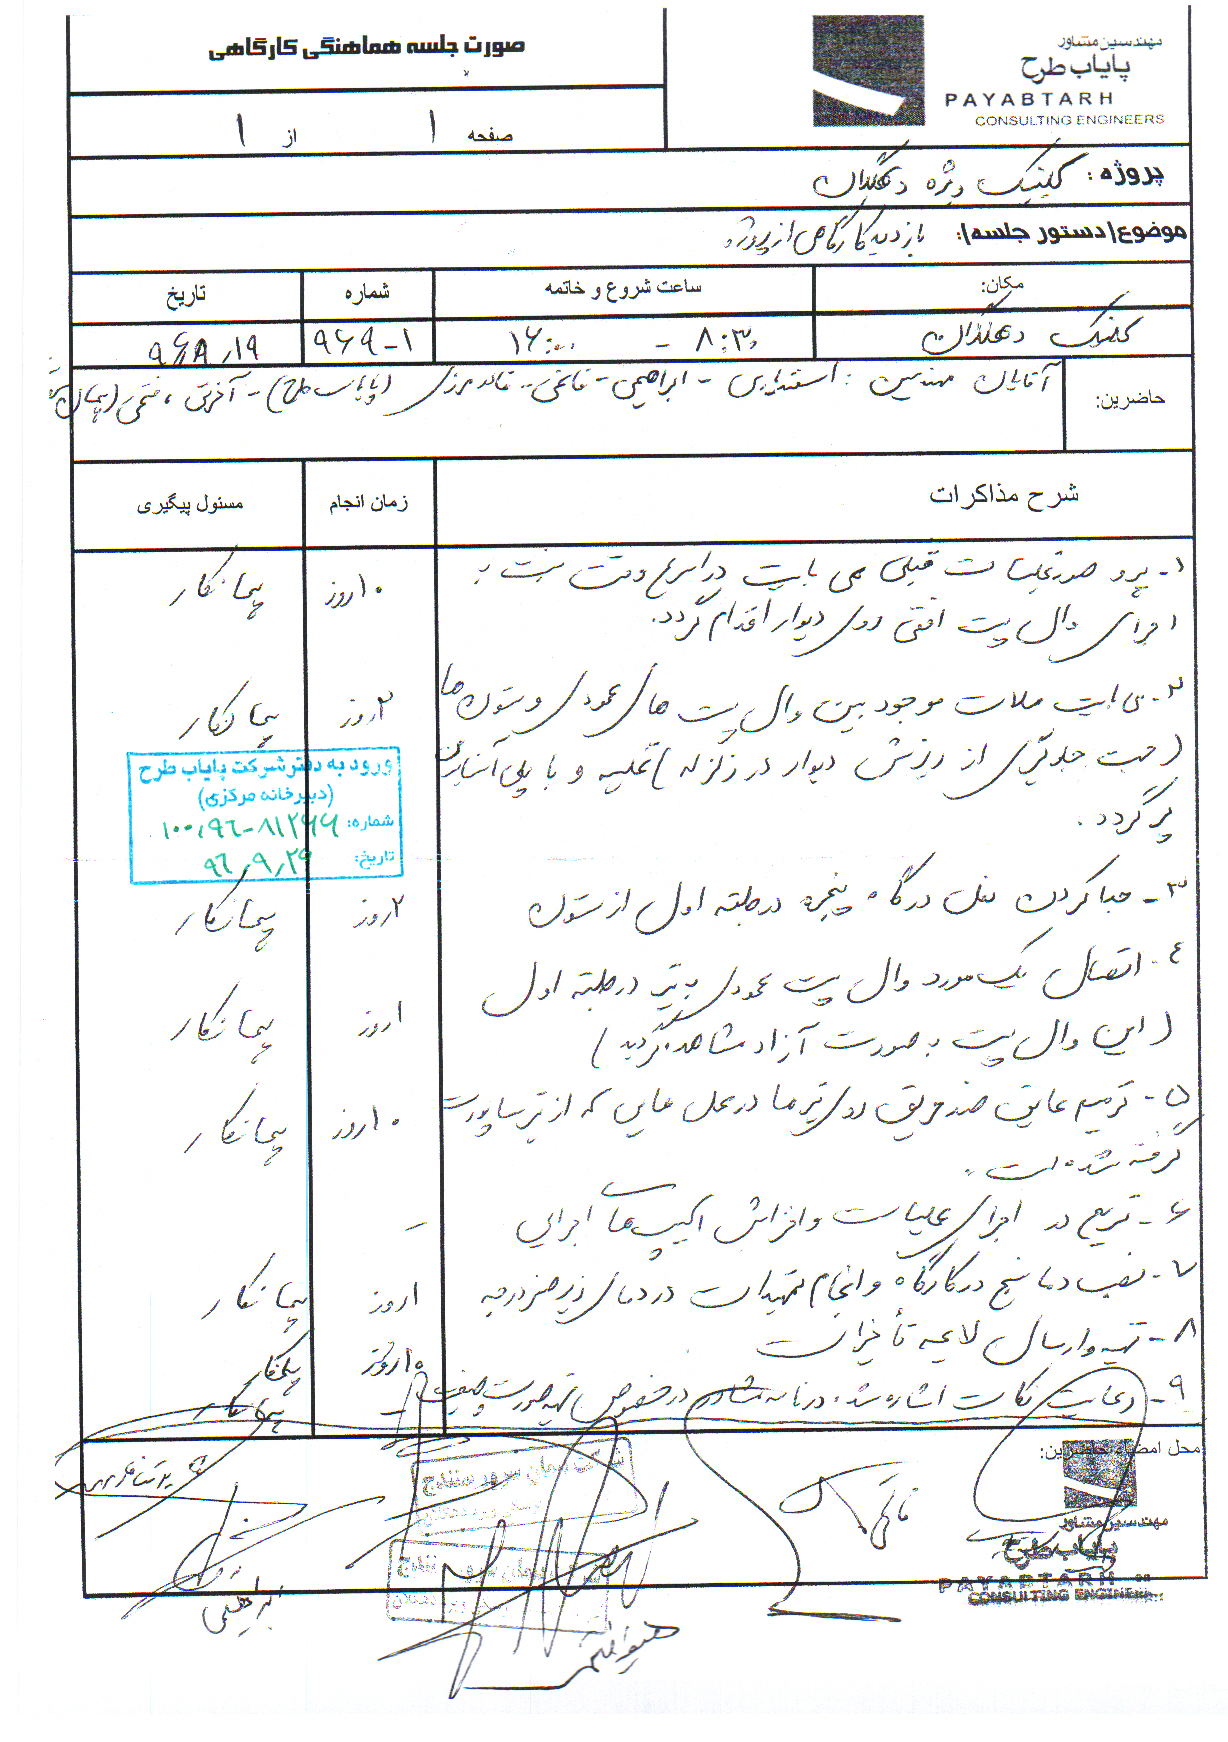 صورت جلسه هماهنگی کارگاهی
صفحه ۱ از ۱
مهندسین مشاور
پایاب طرح
PAYABTARH
CONSULTING ENGINEERS
پروژه: کلینیک ویژه دهگلان
موضوع(دستور جلسه): بازدید کارگاهی از پروژه
مکان: ساعت شروع و خاتمه شماره تاریخ
کلینیک دهگلان ۸:۳۰ - ۱۶:۰۰ ۹۶۹-۱
حاضرین: آقایان مهندسین : - ابراهیمی - - (پایاب طرح) - ،
شرح مذاکرات زمان انجام مسئول پیگیری
۱- پیرو صورتجلسات قبلی می بایست در اسرع وقت نسبت به ۱۰ روز پیمانکار
اجرای وال پست افقی روی دیوار اقدام گردد.
۲- می بایست ملات موجود بین وال پست های عمودی و ستون ها ۲ روز پیمانکار
(جهت جلوگیری از ریزش دیوار در زلزله) تخلیه و با پلی استایرن
پر گردد.
ورود به دفتر شرکت پایاب طرح
(دبیرخانه مرکزی)
شماره: ۱۰۰،۹۶-۸۱۲۶۶
تاریخ: ۹۶،۹،۲۹
۳- جدا کردن نعل درگاه پنجره در طبقه اول از ستون ۲ روز پیمانکار
۴- اتصال یک مورد وال پست عمودی به تیر در طبقه اول ۱ روز پیمانکار
(این وال پست به صورت آزاد مشاهده گردید)
۵- ترمیم عایق ضد حریق روی تیرها در محل هایی که از تیر ساپورت ۱۰ روز پیمانکار
گرفته شده است.
۶- تسریع در اجرای عملیات و افزایش اکیپ های اجرایی -
۷- نصب دماسنج در کارگاه و انجام تمهیدات در دمای زیر صفر درجه ۱ روز پیمانکار
۸- تهیه و ارسال لایحه تأخیرات ۱۰ روز پیمانکار
۹- رعایت نکات اشاره شده در نامه مشاور در خصوص تهیه صورت وضعیت - پیمانکار
محل امضاء حاضرین:
مهندسین مشاور
پایاب طرح
PAYABTARH
CONSULTING ENGINEERS
ابراهیمی